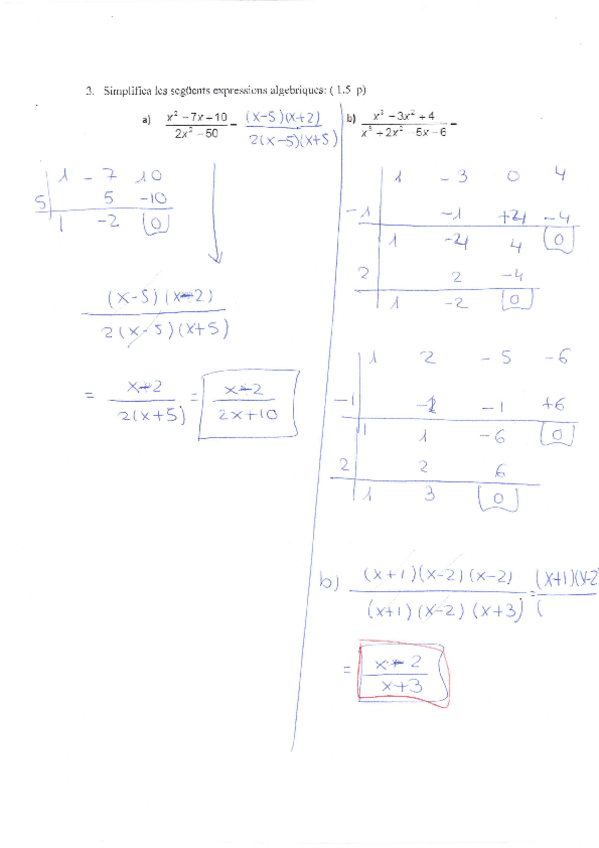 3. Simplifica les següents expressions algebriques: ( 1.5 p)
a) x² −7x −10 / 2x² −50 = (x−5)(x+2) / 2(x−5)(x+5)
b) x³ −3x² + 4 / x³ + 2x² −5x −6 =
1 −7 10
5 5 −10
1 −2 0
(x−5)(x−2) / 2(x−5)(x+5)
= x−2 / 2(x+5) = x−2 / 2x+10
1 −3 0 4
−1 −1 +4 −4
1 −4 4 0
2 2 −4
1 −2 0
1 2 −5 −6
−1 −1 −1 +6
1 1 −6 0
2 2 6
1 3 0
b) (x+1)(x−2)(x−2) / (x+1)(x−2)(x+3) = (x+1)(x−2) / (
= x−2 / x+3